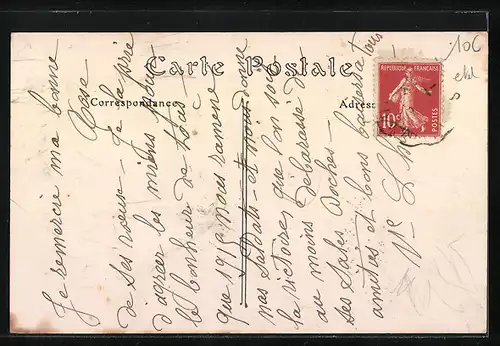 Carte Postale
Correspondance
Adresse
RÉPUBLIQUE FRANÇAISE
10c
POSTES
10c
Je remercie ma bonne
Rose
de ses voeux – Je la prie
d'agréer les miens pour
le bonheur de tous –
que 1915 nous ramène
nos soldats – et nous donne
la victoire, que l'on soit
au moins débarassé de
ses sales Boches –
amitiés et bons baisers à tous